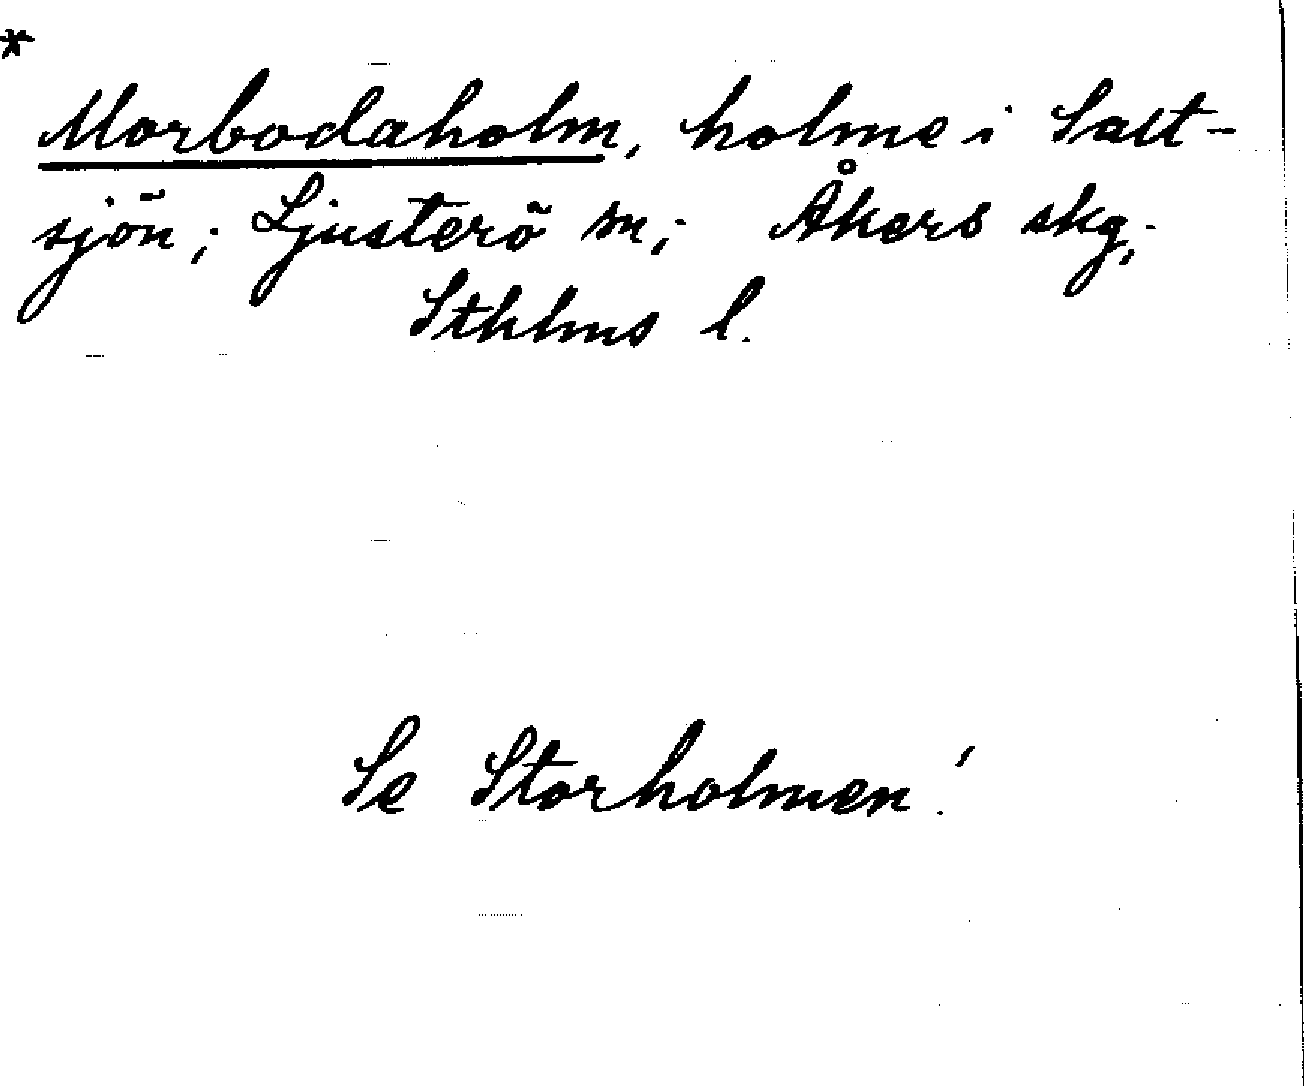 *
Morbodaholm, holme i Salt-
sjön; Ljusterö sn; Åkers skg;
Sthlms l.
Se Storholmen!